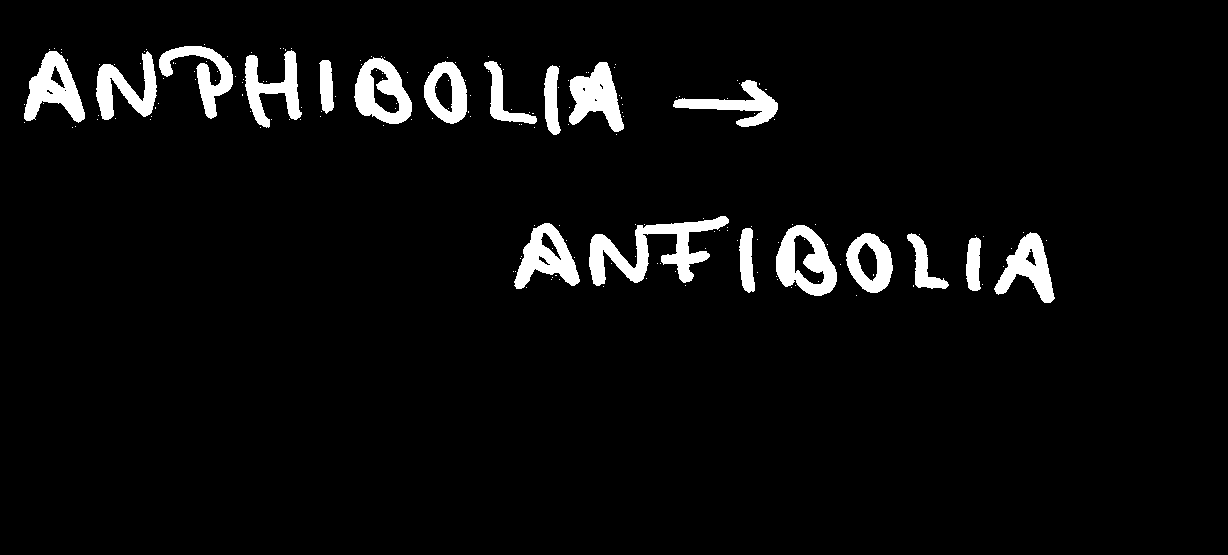 ANPHIBOLIA →
ANFIBOLIA